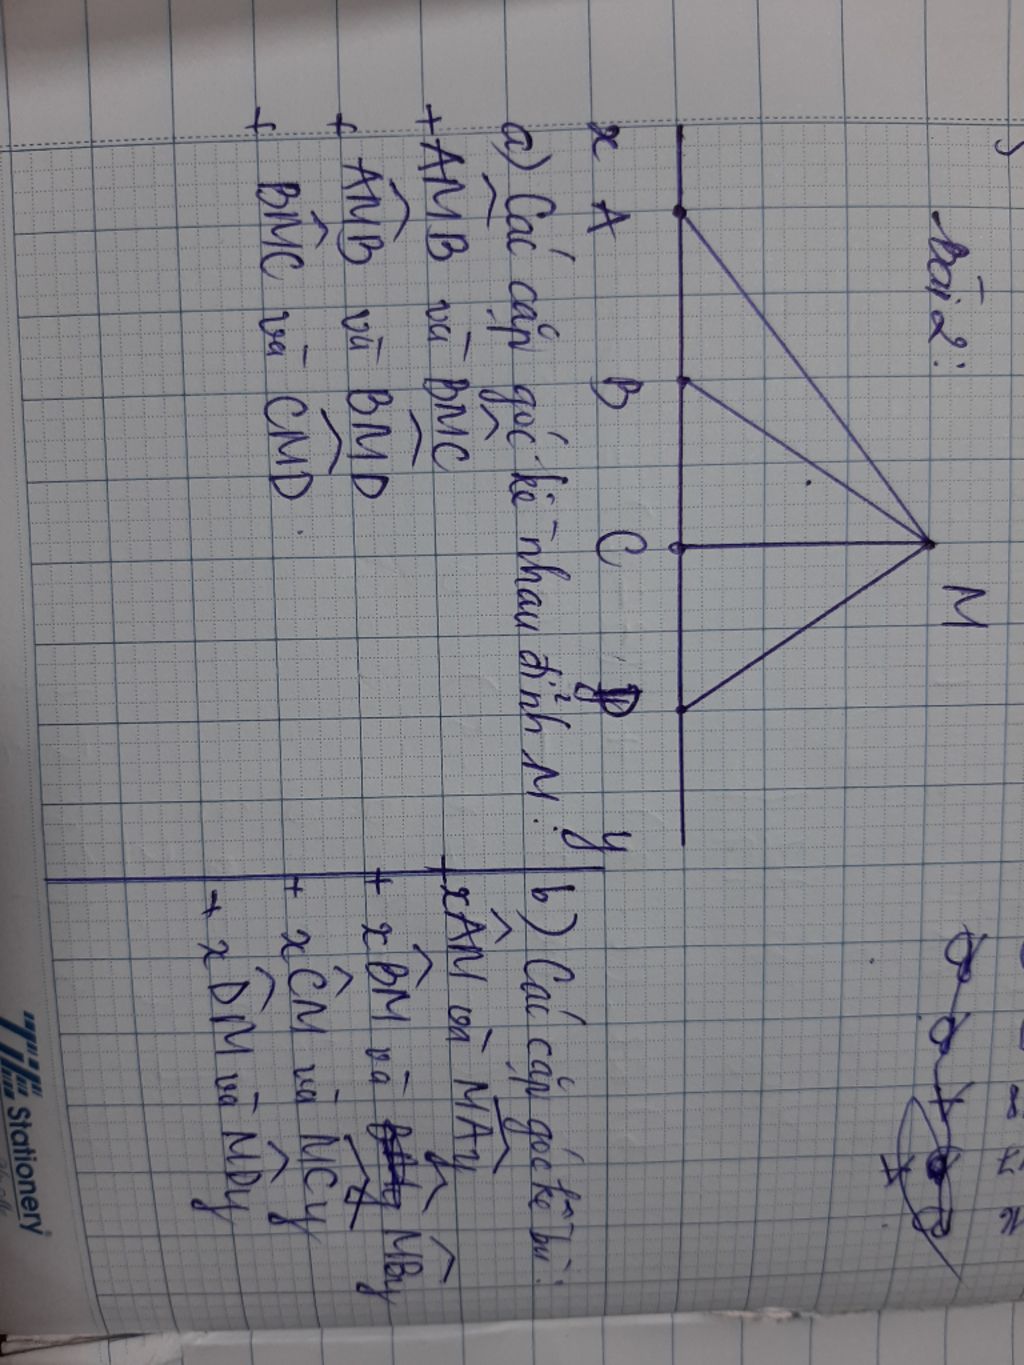 bài 2:
M
x A B C D y
a) Các cặp góc kề nhau đỉnh M:
+ AMB và BMC
+ AMB và BMD
+ BMC và CMD.
b) Các cặp góc kề bù:
+ xAM và MAy
+ xBM và MBy
+ xCM và MCy
+ xDM và MDy
Stationery